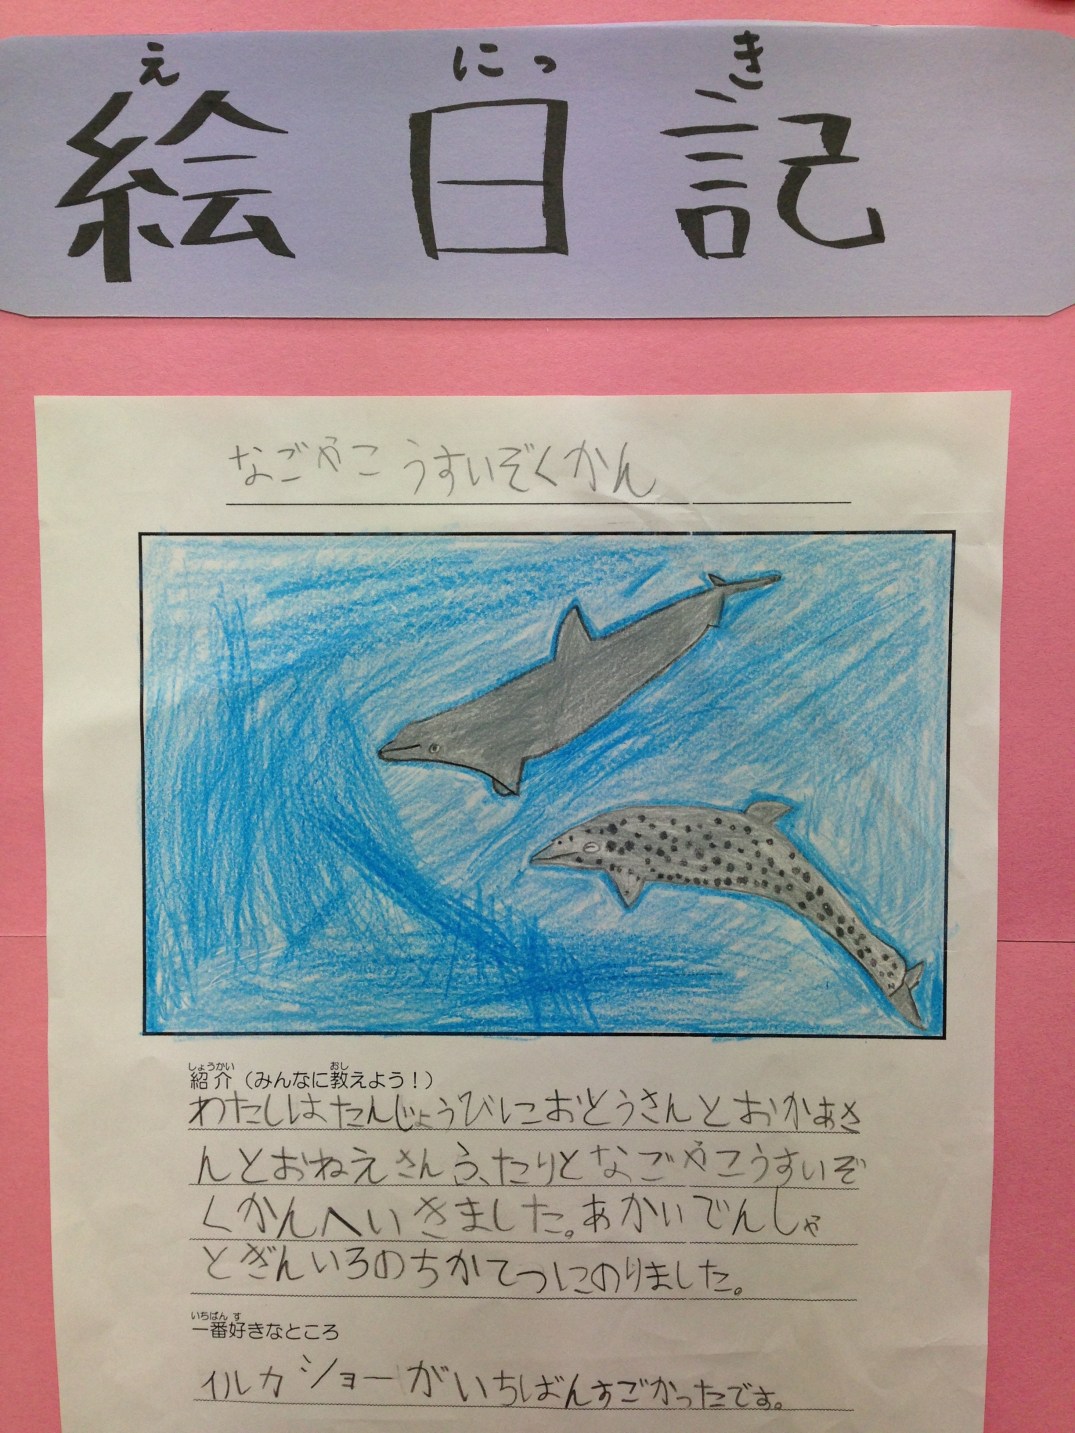 え にっ き
絵日記
なごやこうすいぞくかん
しょうかい おし
紹介（みんなに教えよう！）
わたしはたんじょうびにおとうさんとおかあさ
んとおねえさんふたりとなごやこうすいぞ
くかんへいきました。あかいでんしゃ
とぎんいろのちかてつにのりました。
いちばん す
一番好きなところ
イルカショーがいちばんすごかったです。